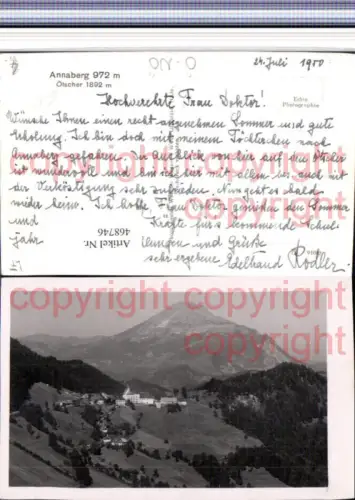 Annaberg 972 m
Ötscher 1892 m
24. Juli 1950
Echte
Photographie
Hochverehrte Frau Doktor!
Wünsche Ihnen einen recht angenehmen Sommer und gute
Erholung. Ich bin doch mit meinem Töchterchen nach
Annaberg gefahren. Der Ausblick von hier auf den Ötscher
ist wundervoll und bin ich hier mit allem bes. auch mit
der Verköstigung sehr zufrieden. Nun geht es bald
wieder heim. Ich hoffe, Frau Doktor genießen den Sommer
und Kräfte fürs kommende Schul-
jahr
Artikel Nr
468746
und Grüße
sehr ergebene
Edeltraud Rodler
copyright copyright
copyright copyright
copyright copyright
copyright copyright